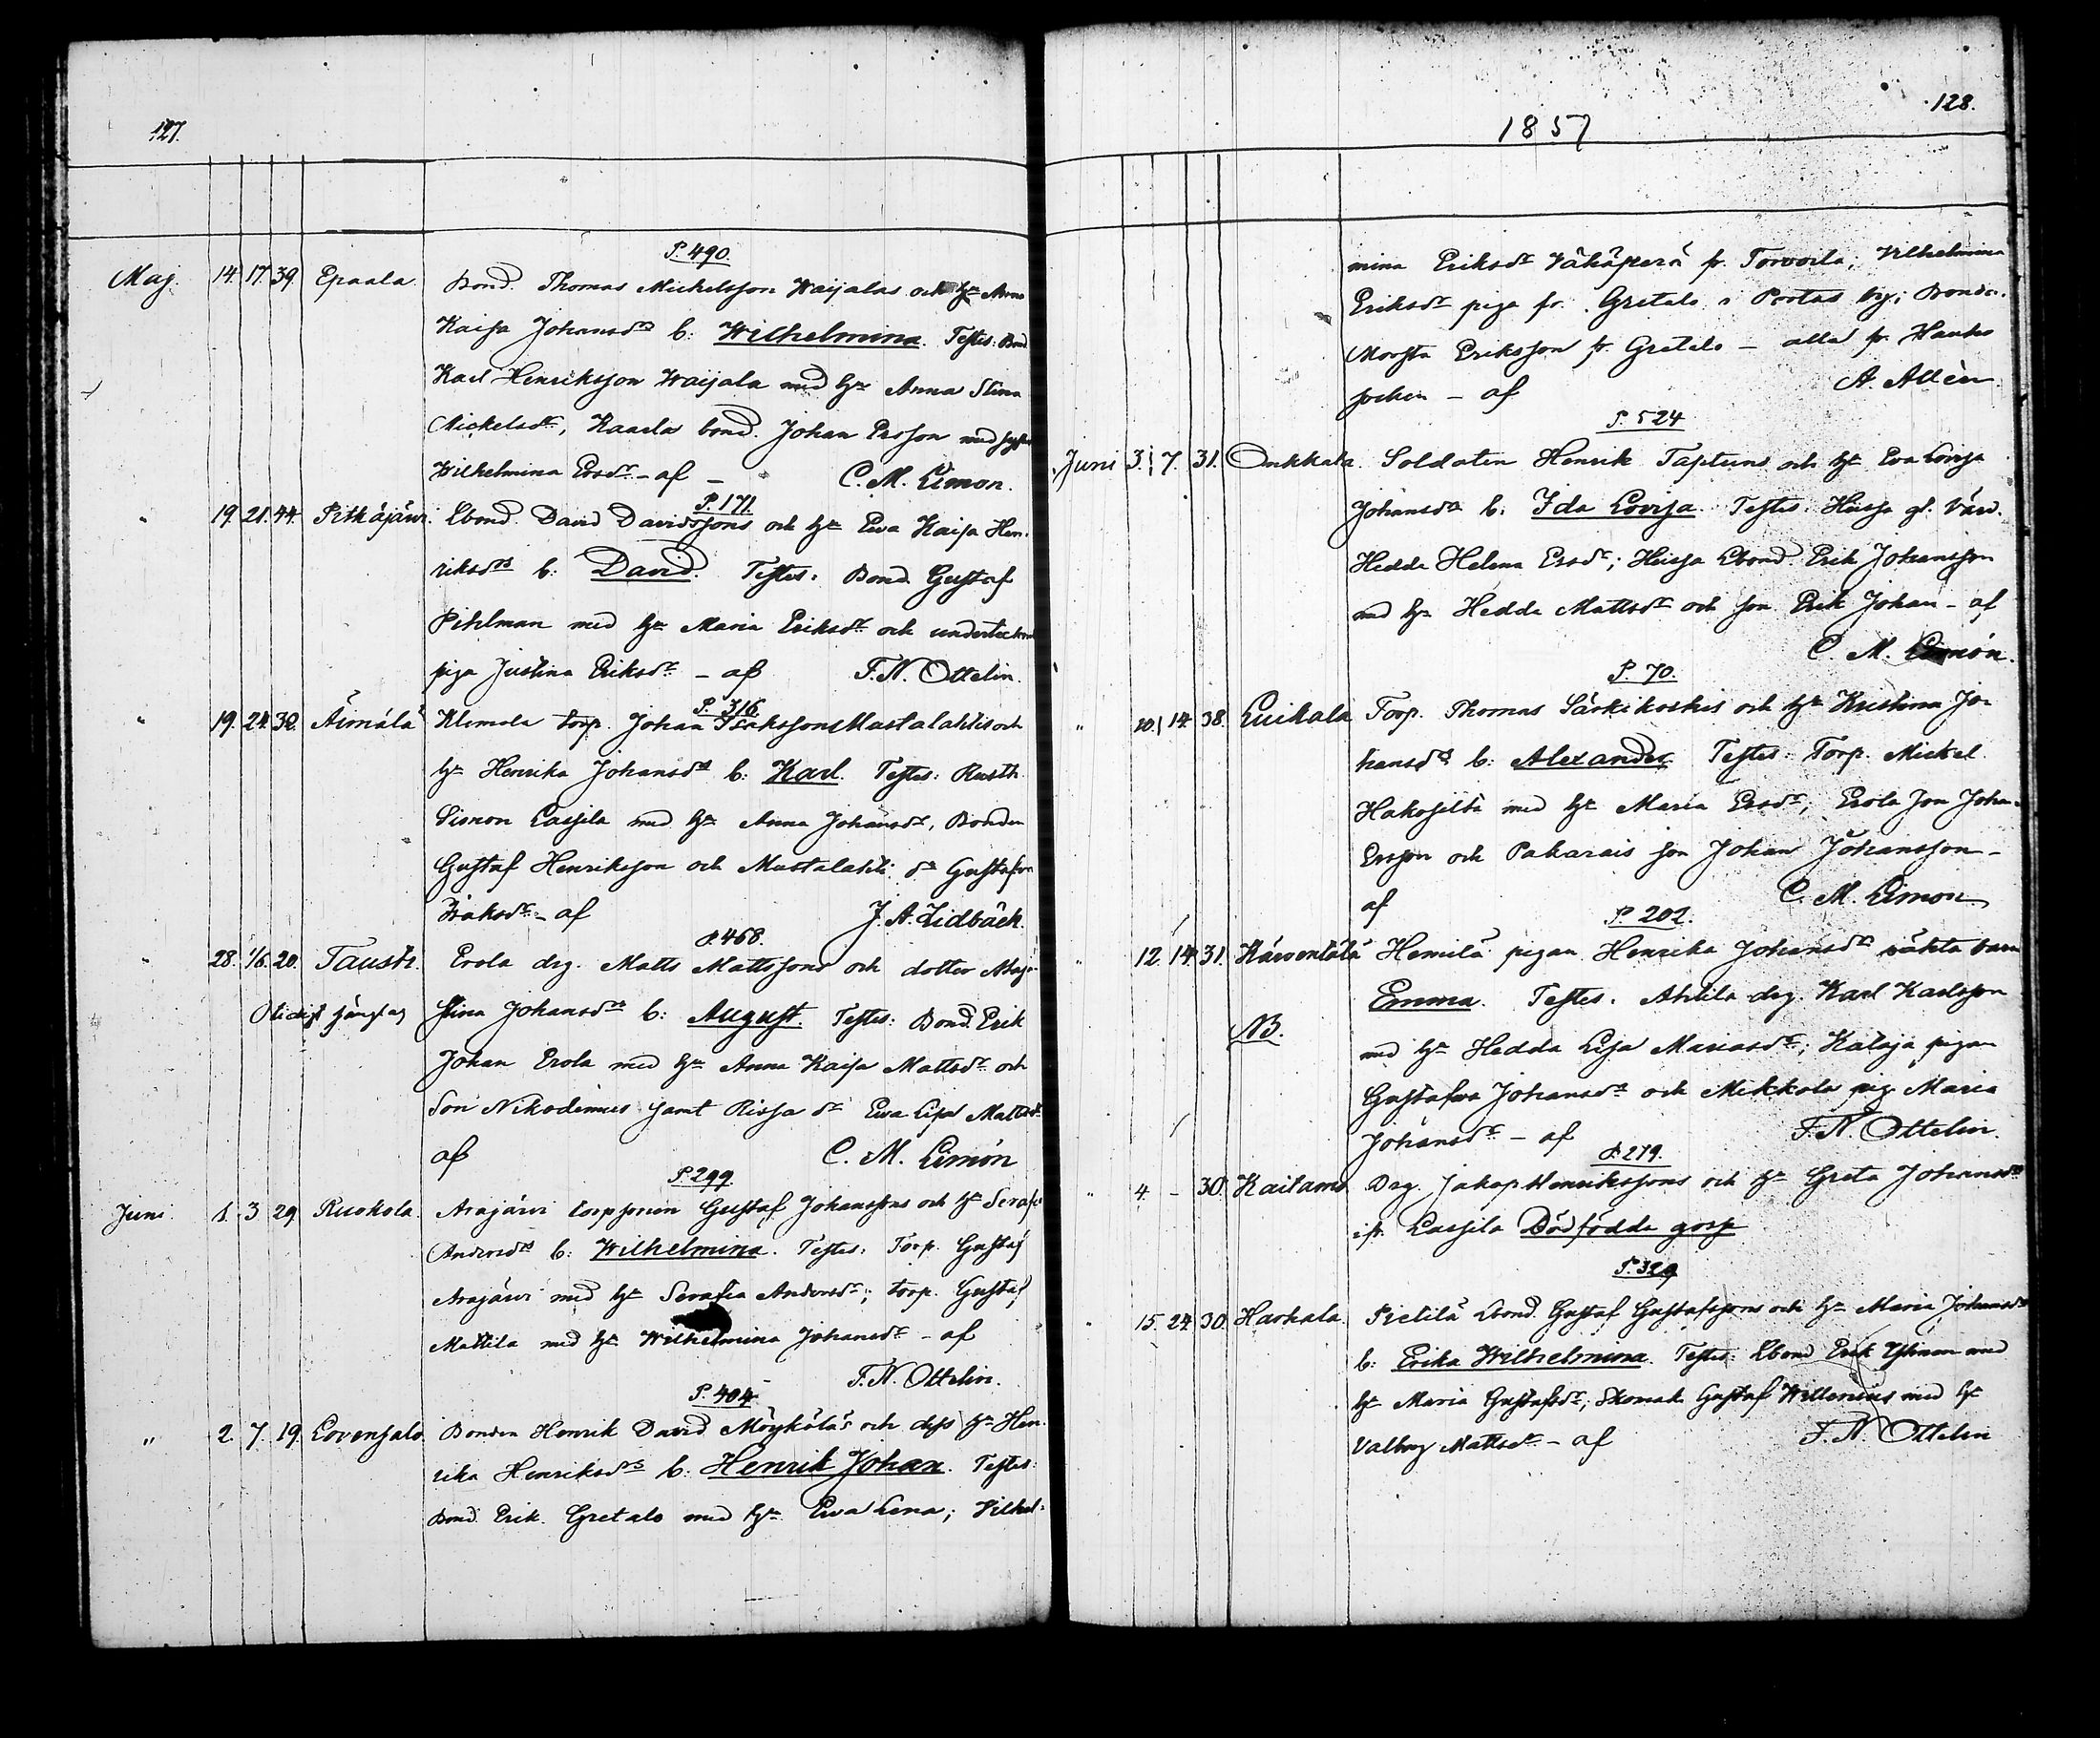 127.
P. 490.
Maj. 14. 17. 39. Epaala Bond. Thomas Mickelsson Waijalas och hu Anna
Kaisa Johansdrs b: Wilhelmina. Testes: Bond
Karl Henriksson Waijala med hu Anna Stina
Mickelsdr, Kaarla bond. Johan Ersson med
Wilhelmina Ersdr - af - C. M. Limon.
P. 171.
" 19. 21. 44. Pitkäjärvi. Ebond. David Davidssons och hu Eva Kaisa Hen-
riksdrs b: David. Testes: Bond. Gustaf
Pihlman med hu Maria Eriksdr och
piga Justina Eriksdr - af F. N. Ottelin.
P. 316
" 19. 24. 32. Äimälä Klemola torp. Johan Isakssons Mustalahtis och
hu Henrika Johansdrs b: Karl. Testes: Rusth.
Simon Lassila med hu Anna Johansdr, Bonden
Gustaf Henriksson och Mustalahti dr Gustafva
Isaksdr - af J. A. Lidbäck.
P. 468.
" 28. 1/6. 20. Tausti. Erola drg. Matts Mattssons och dotter Maja
Stina Johansdrs b: August. Testes: Bond. Erik
Johan Erola med hu Anna Kaisa Mattsdr och
Son Nikodemus samt Rissa dr Eva Lisa Mattsdr
af C. M. Limón
P. 299
Juni 1. 3. 29. Ruokola. Arajärvi torpsonen Gustaf Johanssons och hu
Andersdrs b: Wilhelmina. Testes: Torp. Gustaf
Arajärvi med hu Serafia Andersdr; torp. Gustaf
Mattila med hu Wilhelmina Johansdr - af
F. N. Ottelin.
P. 404.
" 2. 7. 19. Lovensalo. Bonden Henrik David Möykäläs och dess hu Hen-
rika Henriksdrs b: Henrik Johan. Testes:
Bond. Erik Gretalo med hu Eva Lena; Vilhel-
128.
1857
mina Eriksdr Vähäperä fr. Torvoila; Vilhelmina
Eriksdr piga fr. Gretalo i Portas by; Bonde-
Eriksson fr. Gretalo - alla fr. Hauho
socken - af A. Allén
P. 524
Juni 3. 7. 31. Onkkala. Soldaten Henrik Taptuns och hu Eva Lovisa
Johansdrs b: Ida Lovisa. Testes: Heissa gl. Värd.
Hedda Helena Ersdr; Heissa Ebond. Erik Johansson
med hu Hedda Mattsdr och son Erik Johan - af
C. M. Limón.
P. 70.
" 10. 14. 38. Luikala Torp. Thomas Särkikoskis och hu Kristina Jo-
hansdrs b: Alexander. Testes: Torp. Mickel
Hakosilta med hu Maria Ersdr; Erola son Johan
Ersson och Pakarais son Johan Johansson -
af C. M. Limon
P. 202.
" 12. 14. 31. Kärventälä Hemilä pigan Henrika Johansdrs oäkta barn
Emma. Testes: Ahlila drg. Karl Karlsson
NB.
med hu Hedda Lisa Mariasdr; Kataja pigan
Gustafva Johansdr och Mikkola pig. Maria
Johansdr - af F. N. Ottelin.
P. 279.
" 4 - 30. Kailamo Drg. Jakop Henrikssons och hu Greta Johansdrs
ifr. Lassila Dödfödda goss
P. 329
" 15. 24. 30. Harhala. Pietilä Ebond. Gustaf Gustafssons och hu Maria Johansdrs
b: Erika Wilhelmina. Testes: Ebond Erik med
hu Maria Gustafsdr; Skomak. Gustaf Willenius med hu
Valborg Mattsdr - af F. N. Ottelin